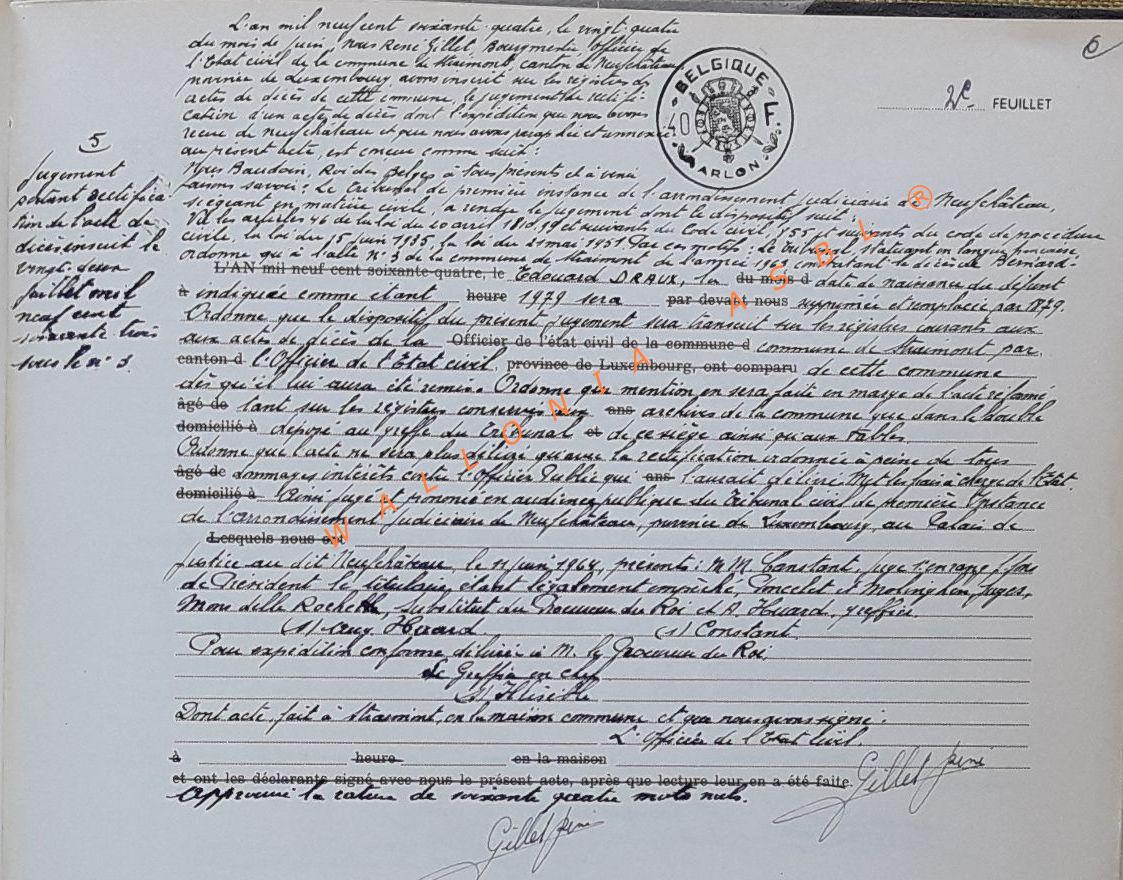 6
2e FEUILLET
BELGIQUE
40 F.
ARLON
5
Jugement
portant rectifica-
tion de l'acte de
décès inscrit le
vingt-deux
juillet mil
neuf cent
soixante trois
sous le n° 3.
L'an mil neuf cent soixante-quatre, le vingt-quatre
du mois de juin, Nous René Gillet, Bourgmestre Officier de
l'Etat civil de la commune de Straimont, canton de Neufchâteau,
province de Luxembourg avons inscrit sur les registres des
actes de décès de cette commune, le jugement de rectifi-
cation d'un acte de décès dont l'expédition que nous avons
reçue de Neufchâteau et que nous avons paraphé et annexée
au présent acte, est conçue comme suit :
Nous Baudouin, Roi des Belges à tous présents et à venir
faisons savoir : Le tribunal de première instance de l'arrondissement judiciaire de Neufchâteau,
siégeant en matière civile, a rendu le jugement dont le dispositif suit :
Vu les articles 46 de la loi du 20 avril 1810, 99 et suivants du Code civil, 855 et suivants du code de procédure
civile, la loi du 15 juin 1935, la loi du 21 mai 1951 Par ces motifs : Le tribunal, statuant en langue française
ordonne qu'à l'acte n° 3 de la commune de Straimont de l'année 1963 constatant le décès de Bernard-
L'AN mil neuf cent soixante-quatre, le Edouard DRAUX, la du mois d date de naissance du défunt
à indiquée comme étant heure 1979 sera par devant nous supprimée et remplacée par 1879.
Ordonne que le dispositif du présent jugement sera transcrit sur les registres courants aux
aux actes de décès de la Officier de l'état civil de la commune d commune de Straimont par
canton d l'Officier de l'Etat civil province de Luxembourg, ont comparu de cette commune
dès qu'il lui aura été remis. Ordonne que mention en sera faite en marge de l'acte réformé
âgé de tant sur les registres conservés aux ans archives de la commune que dans le double
domicilié à déposé au greffe du tribunal et de ce siège ainsi qu'aux tables.
Ordonne que l'acte ne sera plus délivré qu'avec la rectification ordonnée à peine de tous
âgé de dommages intérêts contre l'Officier Public qui ans l'aurait délivré. Met les frais à charge de l'Etat.
domicilié à Ainsi jugé et prononcé en audience publique du Tribunal civil de première Instance
de l'arrondissement judiciaire de Neufchâteau, province de Luxembourg, au Palais de
Lesquels nous ont
justice au dit Neufchâteau, le 11 juin 1964, présents : MM. Constant, juge
de Président le titulaire étant légalement empêché, Poncelet et juges,
Mons delle Rochette, substitut du Procureur du Roi et A. Huard, greffier.
(s) Aug. Huard. (s) Constant.
Pour expédition conforme délivrée à M. le Procureur du Roi,
Le Greffier en chef
(s)
Dont acte, fait à Straimont, en la maison commune et que nous avons signé.
L'Officier de l'Etat Civil.
à heure en la maison
et ont les déclarants signé avec nous le présent acte, après que lecture leur en a été faite.
Gillet René
Approuvé la rature de soixante quatre mots nuls.
Gillet René
WALLONIA ASBL ®